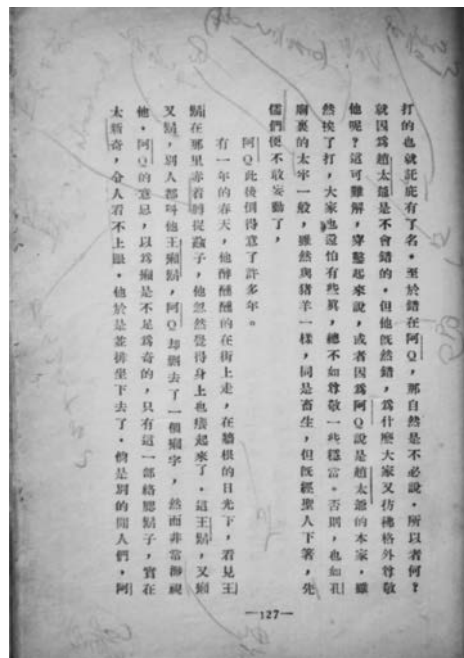 打的也就託庇有了名。至於錯在阿Q,那自然是不必說。所以者何?
就因爲趙太爺是不會錯的。但他旣然錯,爲什麼大家又彷彿格外尊敬
他呢?這可難解,穿鑿起來說,或者因爲阿Q說是趙太爺的本家,雖
然挨了打,大家也還怕有些眞,總不如尊敬一些穩當。否則,也如孔
廟裏的太牢一般,雖然與猪羊一樣,同是畜生,但旣經聖人下箸,先
儒們便不敢妄動了,
阿Q此後倒得意了許多年。
有一年的春天,他醉醺醺的在街上走,在牆根的日光下,看見王
鬍在那里赤着膊捉蝨子,他忽然覺得身上也癢起來了。這王鬍,又癩
又鬍,別人都叫他王癩鬍,阿Q却刪去了一個癩字,然而非常渺視
他。阿Q的意思,以爲癩是不足爲奇的,只有這一部絡腮鬍子,實在
太新奇,令人看不上眼。他於是並排坐下去了。倘是別的閒人們,阿
—127—